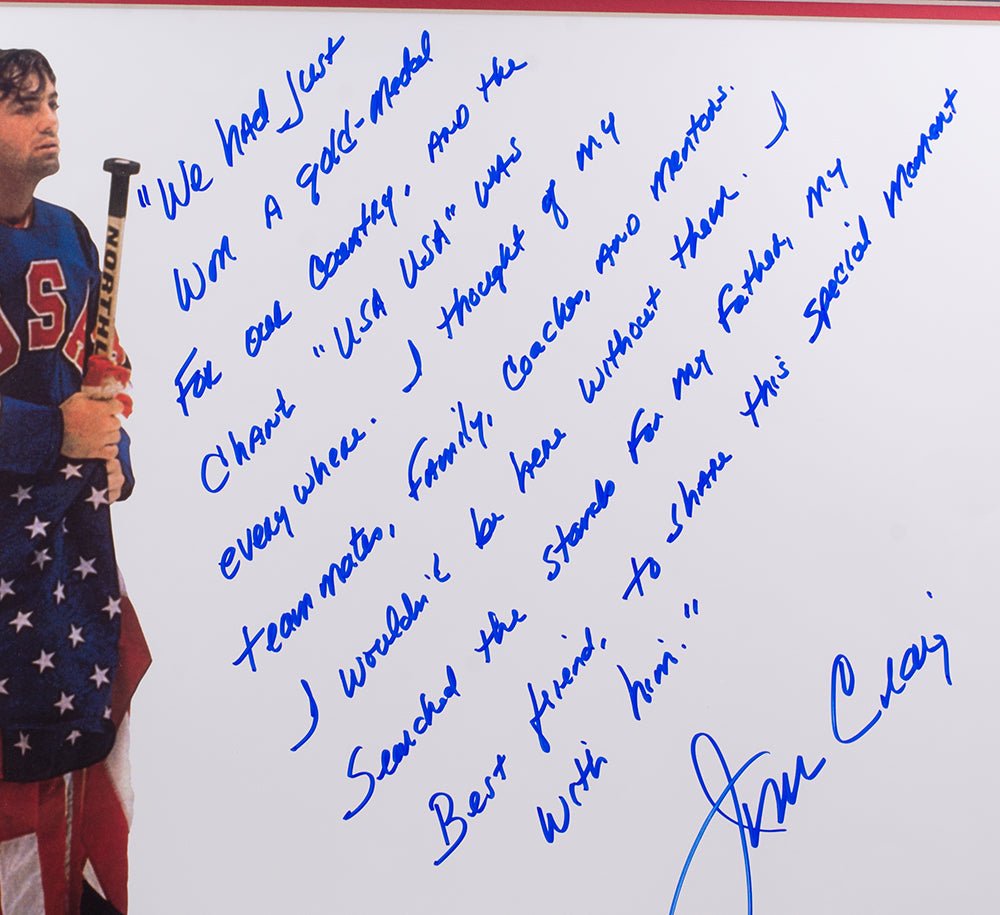 "We had just
won a gold-medal
for our country, and the
chant "USA USA" was
everywhere. I thought of my
teammates, family, coaches, and mentors.
I wouldn't be here without them. I
searched the stands for my father, my
Best friend, to share this special moment
with him."
Jim Craig
NORTH
USA